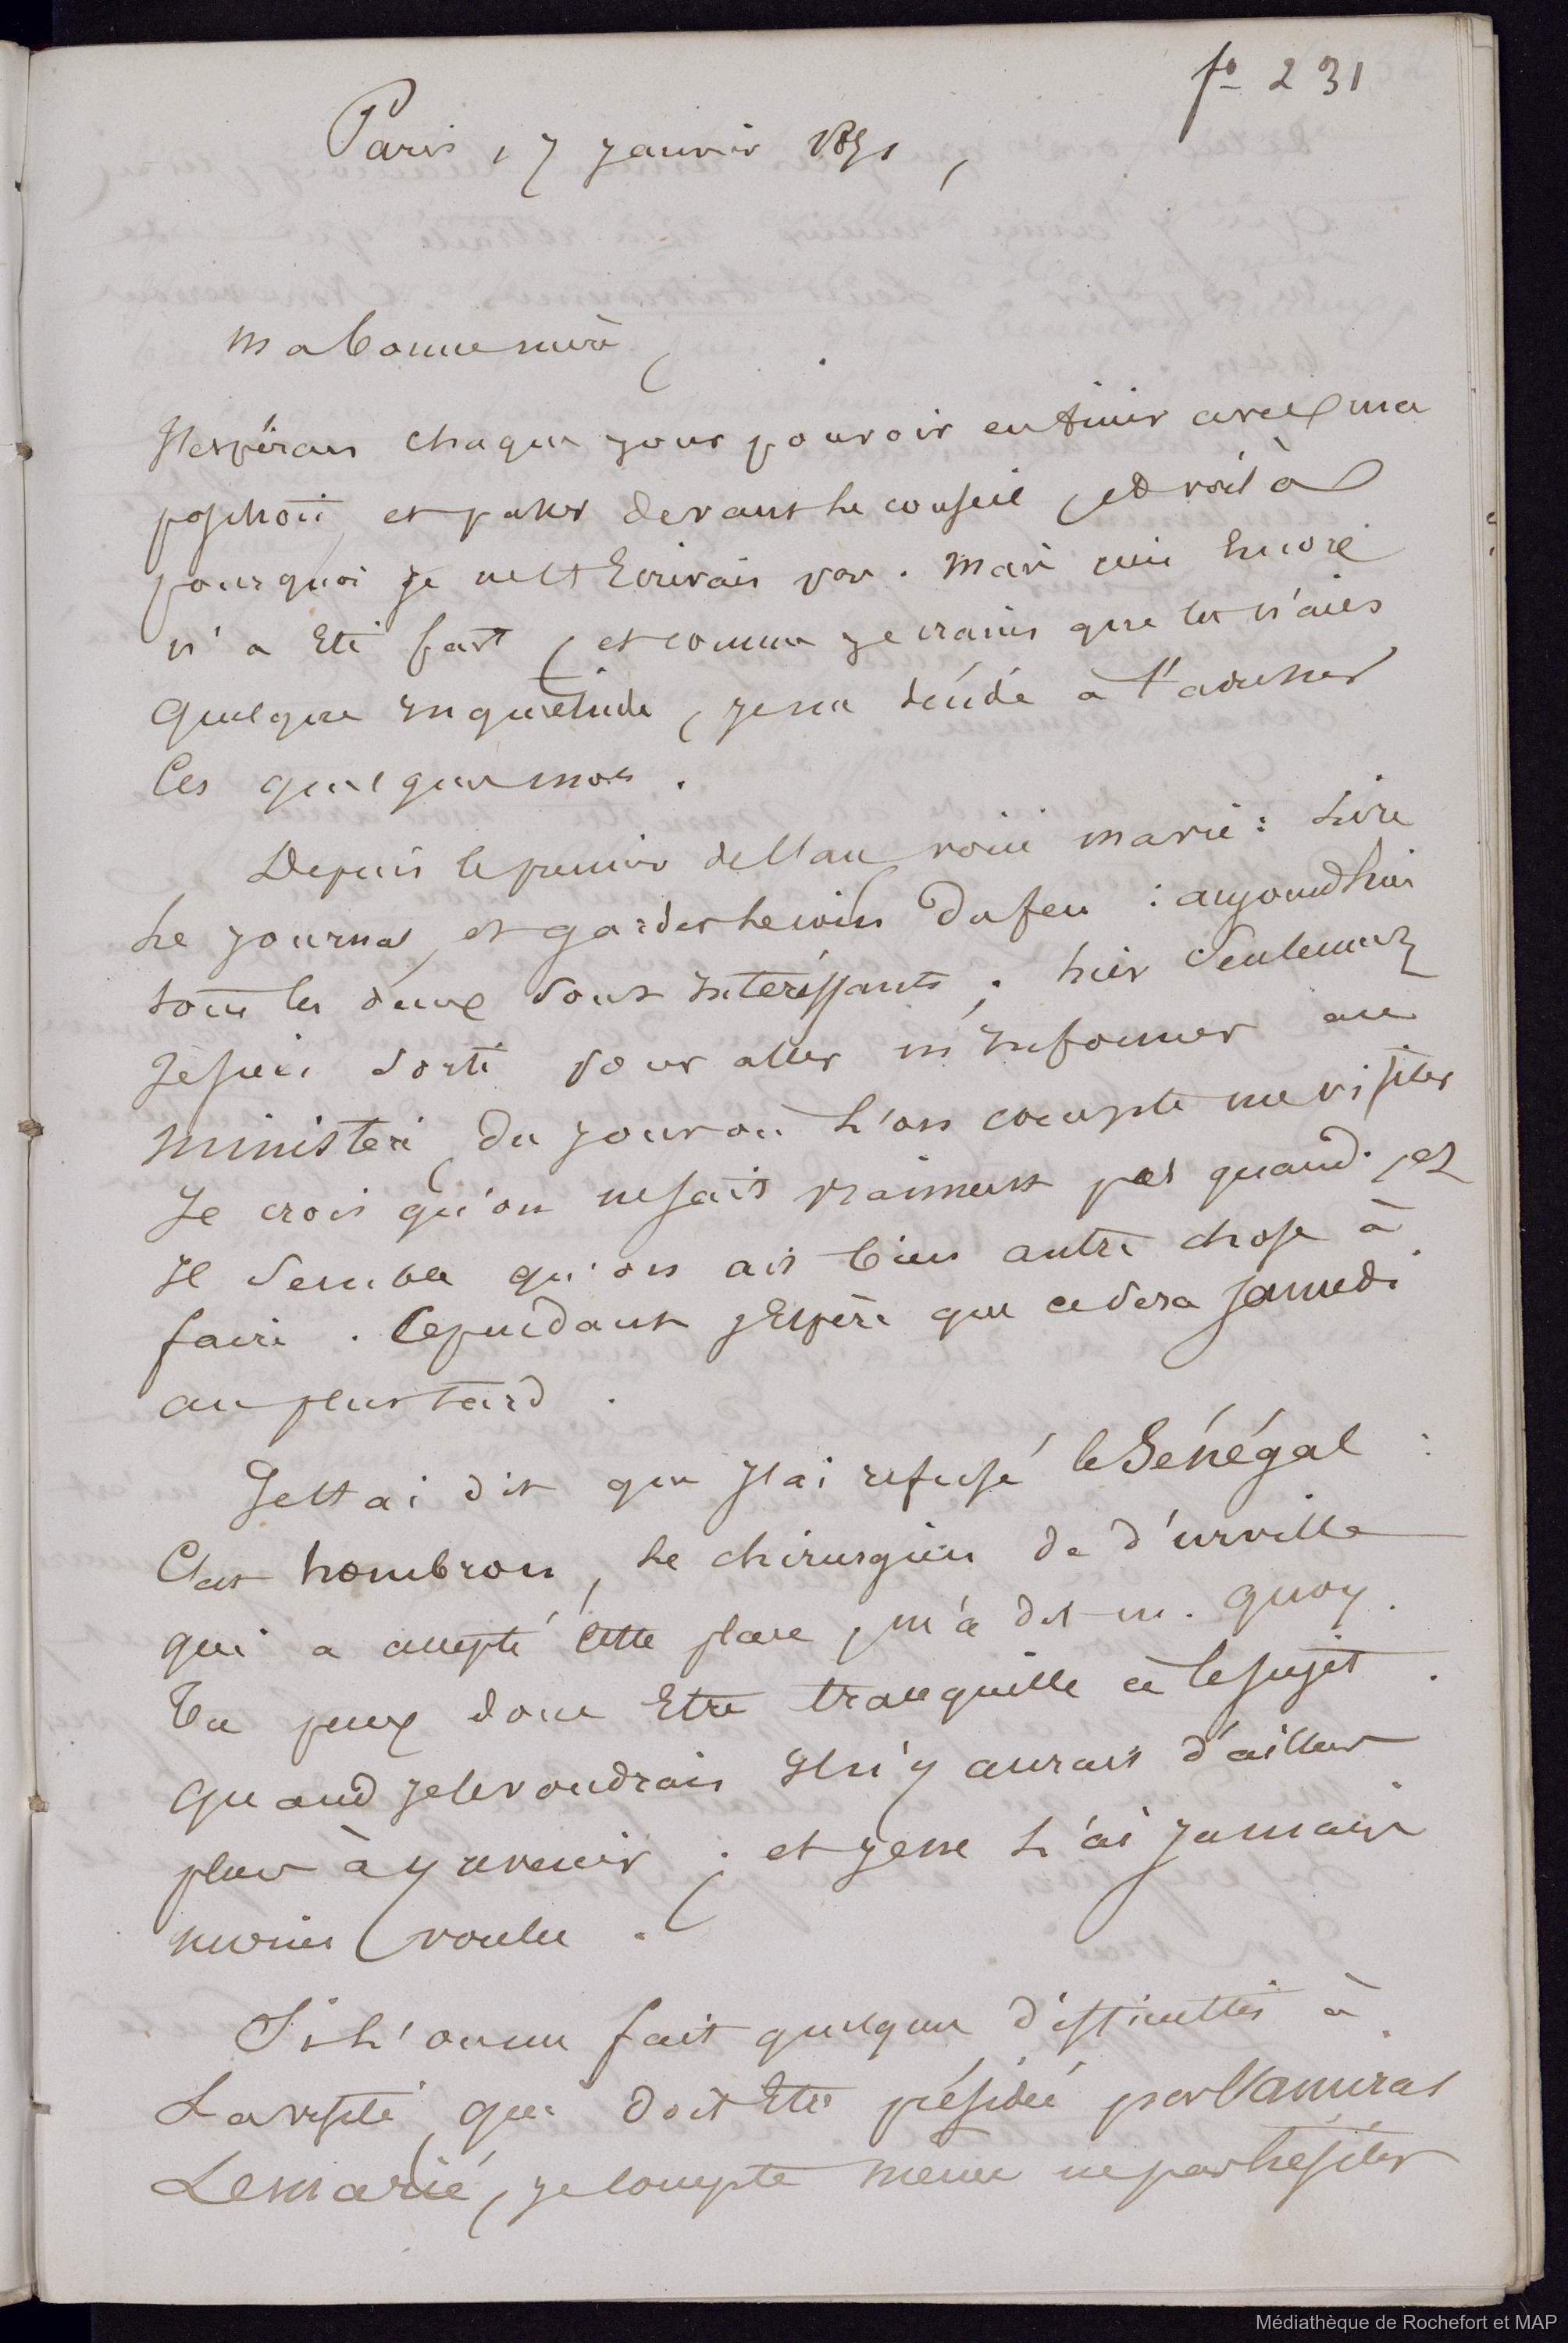 fo 231
Paris, 7 janvier 1851,
ma bonne mère,
J'espérais chaque jour pouvoir en finir avec ma
position et passer devant le conseil, et voilà
pourquoi je ne t'écrivais pas. Mais rien encore
n'a été fait, et comme je crains que tu n'aies
quelque inquiétude, je me décide à t'adresser
ces quelques mots.
Depuis le premier de l'an voici ma vie : Lire
le journal et garder le coin du feu : aujourd'hui
tous les deux sont intéressants. hier seulement
je suis sorti pour aller m'informer au
ministère du jour où l'on compte me visiter
Je crois qu'on ne sait vraiment pas quand. et
il semble qu'on ait bien autre chose à
faire. Cependant j'espère que ce sera samedi
au plus tard.
Je t'ai dit que j'ai refusé le Sénégal :
C'est hombron, le chirurgien de d'urville
qui a accepté cette place, m'a dit m. quoy.
Tu peux donc être tranquille à ce sujet.
Quand je le voudrais il n'y aurait d'ailleurs
plus à y revenir ; et je ne l'ai jamais
moins voulu.
Si l'on me fait quelques difficultés à
La visite, qui doit être présidée par l'amiral
Lemarié, je compte même ne pas hésiter
Médiathèque de Rochefort et MAP